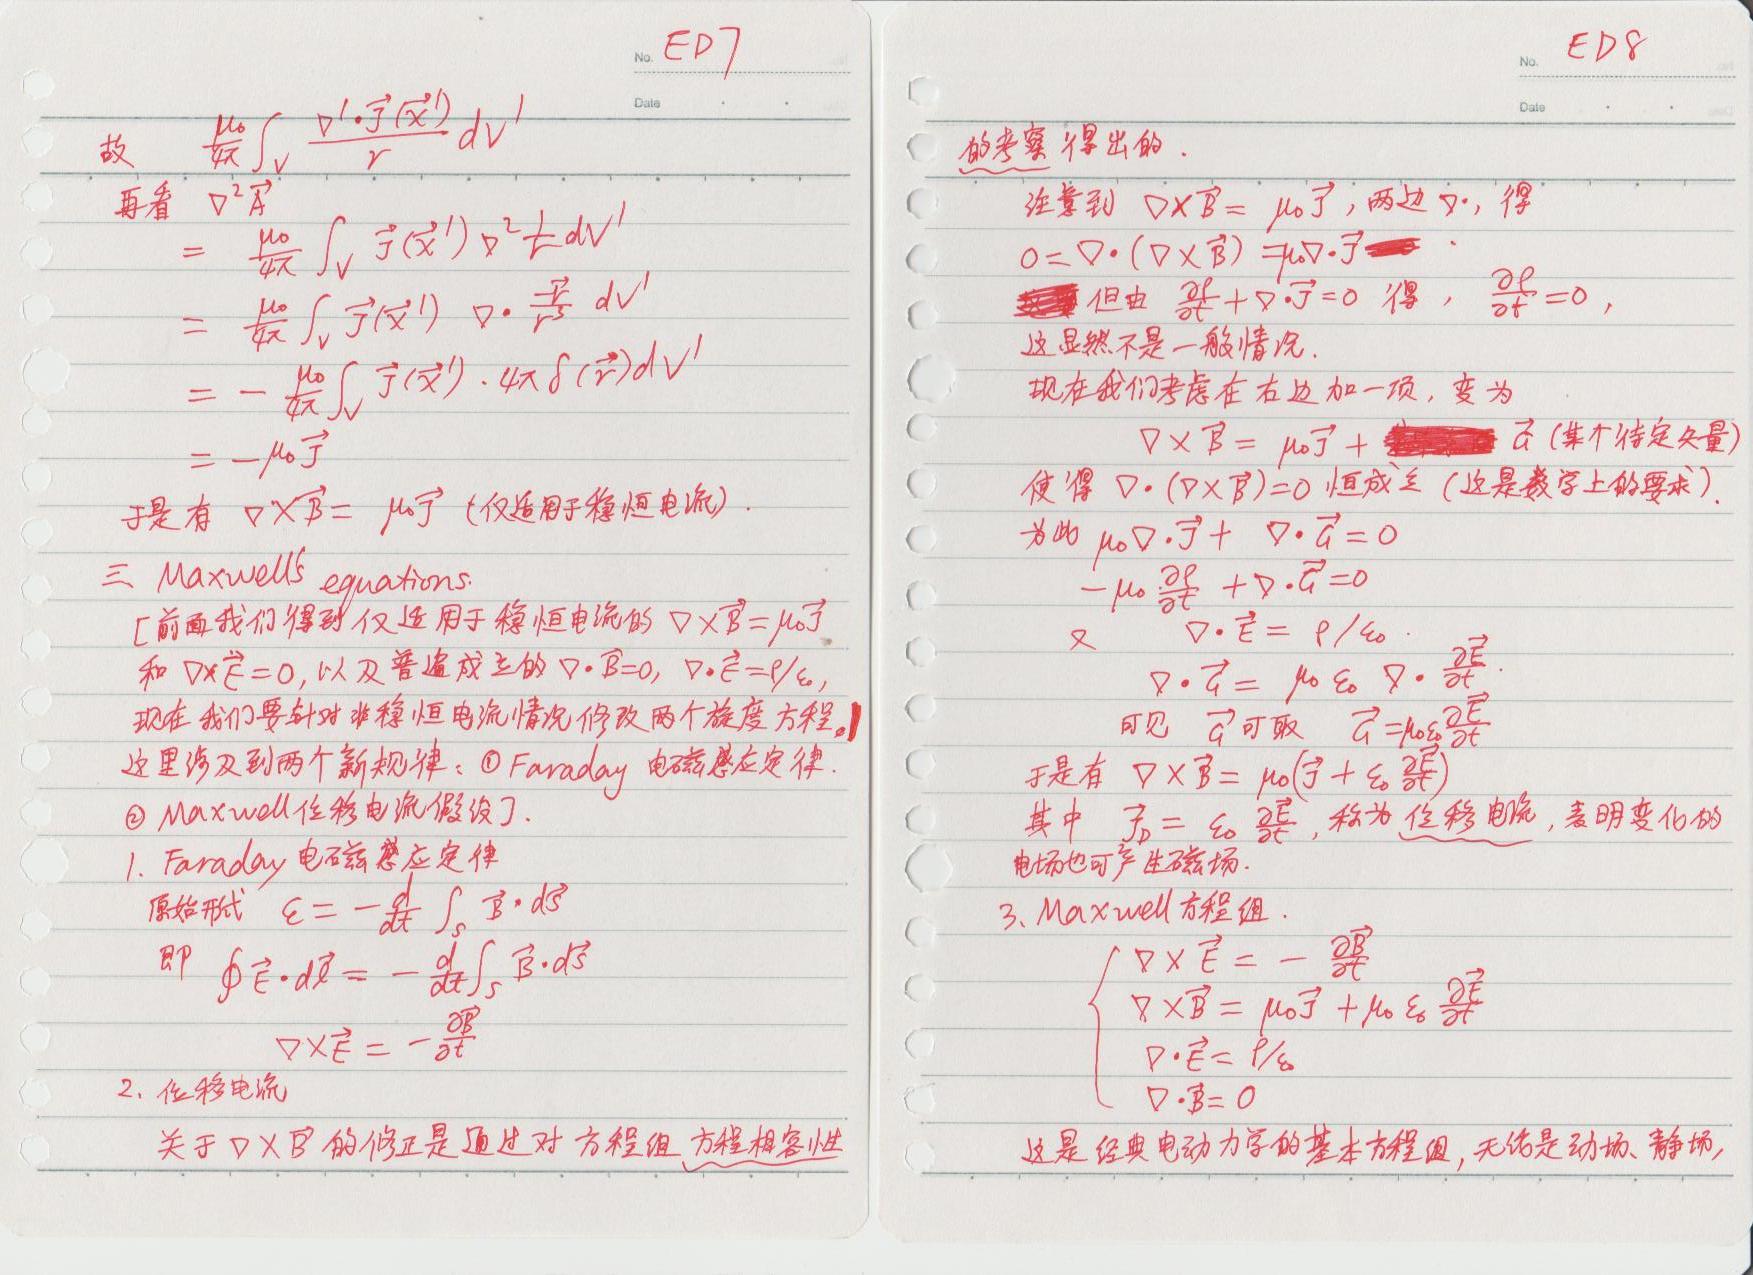 No. ED7
Date
故 $\frac{\mu_0}{4\pi}\int_V \frac{\nabla'\cdot\vec{J}(\vec{x}')}{r}dV'$
再看 $\nabla^2\vec{A}$
$= \frac{\mu_0}{4\pi}\int_V \vec{J}(\vec{x}')\nabla^2\frac{1}{r}dV'$
$= \frac{\mu_0}{4\pi}\int_V \vec{J}(\vec{x}')\nabla\cdot\frac{\vec{r}}{r^3}dV'$
$= -\frac{\mu_0}{4\pi}\int_V \vec{J}(\vec{x}')\cdot 4\pi\delta(\vec{r})dV'$
$= -\mu_0\vec{J}$
于是有 $\nabla\times\vec{B} = \mu_0\vec{J}$ (仅适用于稳恒电流).
三 Maxwell's equations.
[前面我们得到仅适用于稳恒电流的 $\nabla\times\vec{B}=\mu_0\vec{J}$
和 $\nabla\times\vec{E}=0$, 以及普遍成立的 $\nabla\cdot\vec{B}=0$, $\nabla\cdot\vec{E}=\rho/\varepsilon_0$,
现在我们要针对非稳恒电流情况修改两个旋度方程。
这里涉及到两个新规律: ① Faraday 电磁感应定律.
② Maxwell 位移电流假设].
1. Faraday 电磁感应定律
原始形式 $\varepsilon = -\frac{d}{dt}\int_S \vec{B}\cdot d\vec{S}$
即 $\oint\vec{E}\cdot d\vec{l} = -\frac{d}{dt}\int_S \vec{B}\cdot d\vec{S}$
$\nabla\times\vec{E} = -\frac{\partial\vec{B}}{\partial t}$
2. 位移电流
关于 $\nabla\times\vec{B}$ 的修正是通过对方程组方程相容性
No. ED8
Date
的考察得出的.
注意到 $\nabla\times\vec{B} = \mu_0\vec{J}$, 两边 $\nabla\cdot$, 得
$0 = \nabla\cdot(\nabla\times\vec{B}) = \mu_0\nabla\cdot\vec{J}$
但由 $\frac{\partial\rho}{\partial t}+\nabla\cdot\vec{J}=0$ 得, $\frac{\partial\rho}{\partial t}=0$,
这显然不是一般情况.
现在我们考虑在右边加一项, 变为
$\nabla\times\vec{B} = \mu_0\vec{J} + \vec{G}$ (某个待定矢量)
使得 $\nabla\cdot(\nabla\times\vec{B})=0$ 恒成立 (这是数学上的要求).
为此 $\mu_0\nabla\cdot\vec{J} + \nabla\cdot\vec{G} = 0$
$-\mu_0\frac{\partial\rho}{\partial t} + \nabla\cdot\vec{G} = 0$
又 $\nabla\cdot\vec{E} = \rho/\varepsilon_0$.
$\nabla\cdot\vec{G} = \mu_0\varepsilon_0\nabla\cdot\frac{\partial\vec{E}}{\partial t}$.
可见 $\vec{G}$ 可取 $\vec{G} = \mu_0\varepsilon_0\frac{\partial\vec{E}}{\partial t}$
于是有 $\nabla\times\vec{B} = \mu_0(\vec{J}+\varepsilon_0\frac{\partial\vec{E}}{\partial t})$
其中 $\vec{J}_D = \varepsilon_0\frac{\partial\vec{E}}{\partial t}$, 称为位移电流, 表明变化的
电场也可产生磁场.
3. Maxwell 方程组.
$\nabla\times\vec{E} = -\frac{\partial\vec{B}}{\partial t}$
$\nabla\times\vec{B} = \mu_0\vec{J}+\mu_0\varepsilon_0\frac{\partial\vec{E}}{\partial t}$
$\nabla\cdot\vec{E} = \rho/\varepsilon_0$
$\nabla\cdot\vec{B} = 0$
这是经典电动力学的基本方程组, 无论是动场、静场,